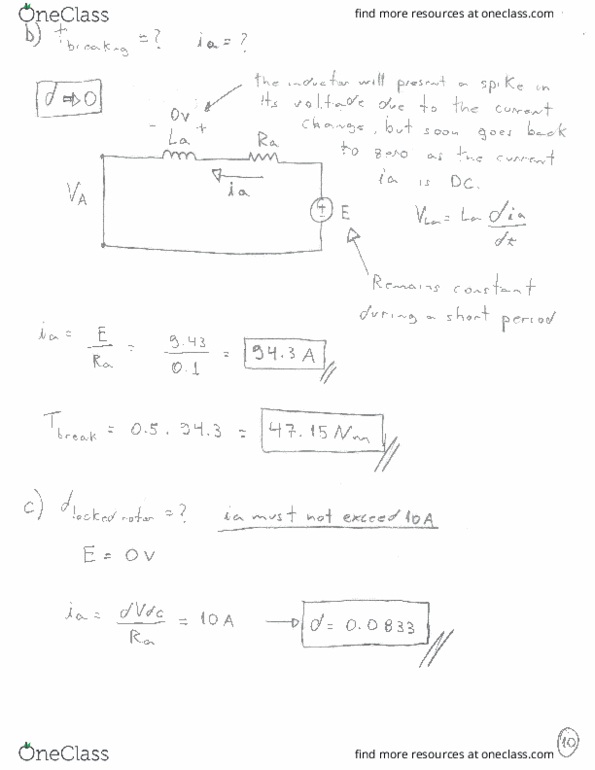 OneClass
find more resources at oneclass.com
b) t breaking = ? ia = ?
d => 0
the inductor will present a spike in
its voltade due to the current
change, but soon goes back
to zero as the current
ia is DC.
0v
- La + Ra
ia
VA
E
VLa = La dia/dt
Remains constant
during a short period
ia = E/Ra = 9.43/0.1 = 94.3 A
Tbreak = 0.5 . 94.3 = 47.15 Nm
c) d locked rotor = ? ia must not exceed 10A
E = 0v
ia = dVdc/Ra = 10A → d = 0.0833
10
OneClass
find more resources at oneclass.com